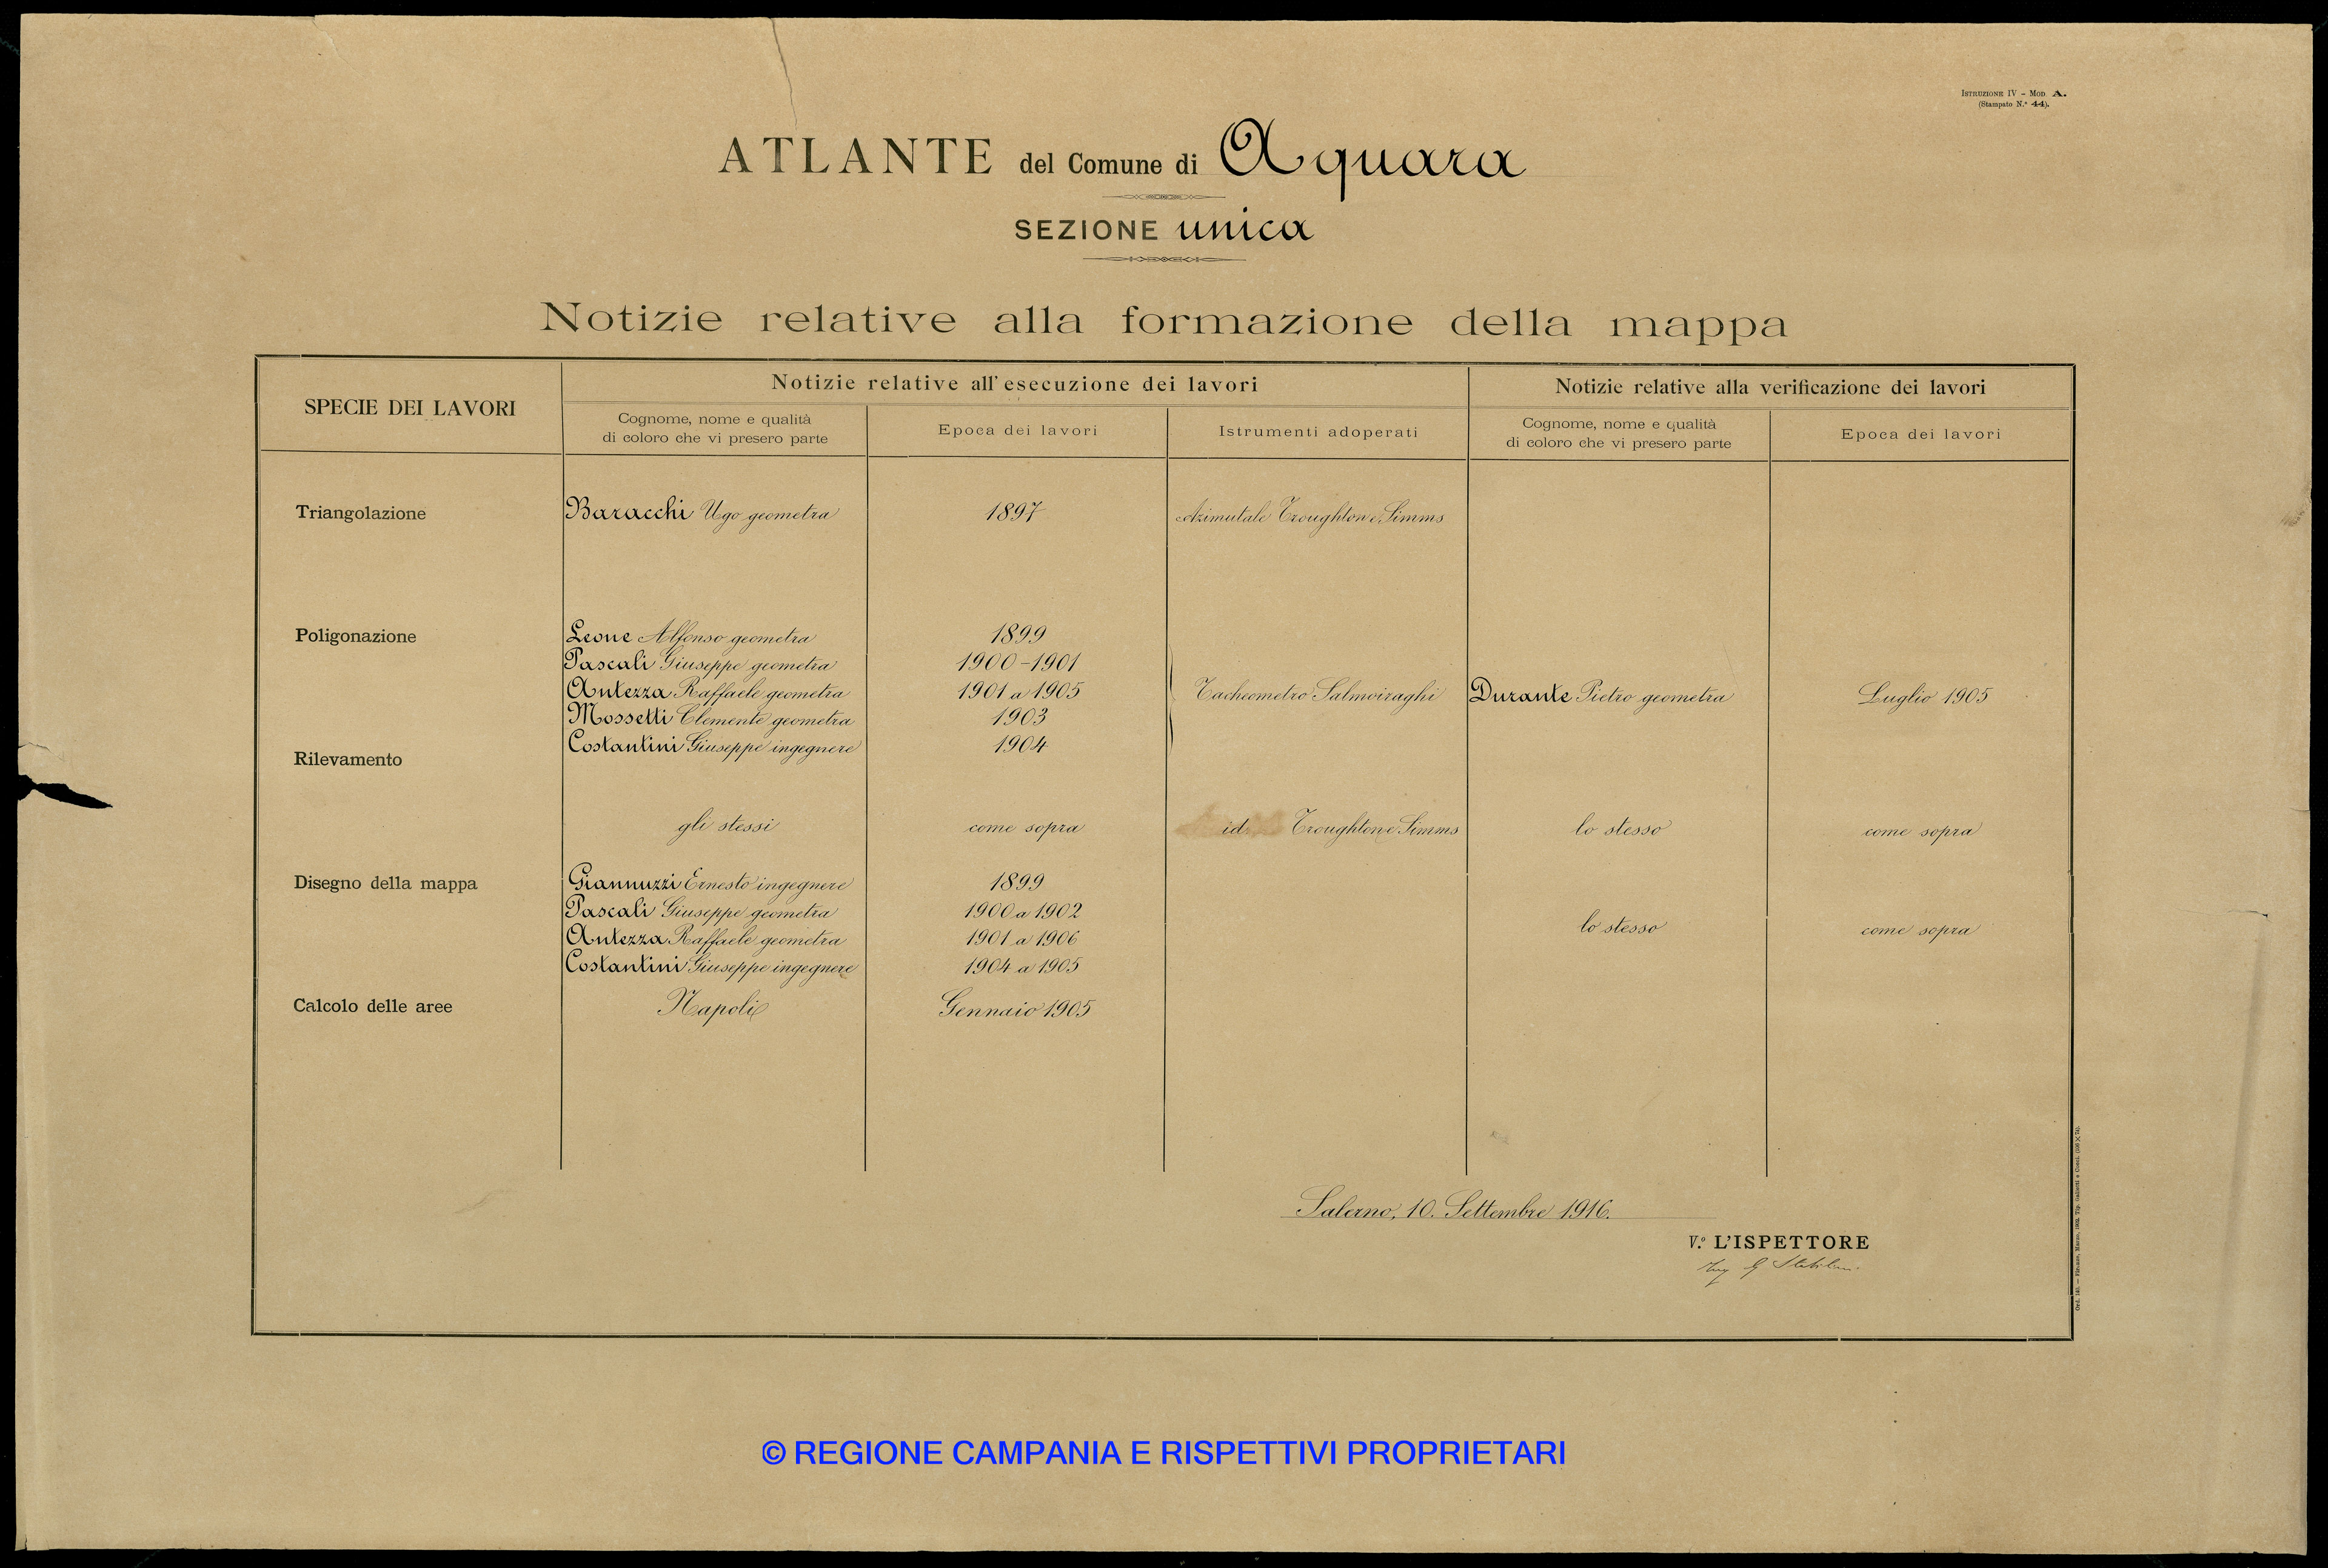 ISTRUZIONE IV - MOD. A.
(Stampato N.° 44).
ATLANTE del Comune di Aquara
SEZIONE unica
Notizie relative alla formazione della mappa
SPECIE DEI LAVORI
Notizie relative all'esecuzione dei lavori
Notizie relative alla verificazione dei lavori
Cognome, nome e qualità
di coloro che vi presero parte
Epoca dei lavori
Istrumenti adoperati
Cognome, nome e qualità
di coloro che vi presero parte
Epoca dei lavori
Triangolazione Baracchi Ugo geometra 1897 Azimutale Troughton e Simms
Poligonazione Leone Alfonso geometra 1899
Pascali Giuseppe geometra 1900-1901
Antezza Raffaele geometra 1901 a 1905 Tacheometro Salmoiraghi Durante Pietro geometra Luglio 1905
Mossetti Clemente geometra 1903
Costantini Giuseppe ingegnere 1904
Rilevamento
gli stessi come sopra id. Troughton e Simms lo stesso come sopra
Disegno della mappa Giannuzzi Ernesto ingegnere 1899
Pascali Giuseppe geometra 1900 a 1902
lo stesso come sopra
Antezza Raffaele geometra 1901 a 1906
Costantini Giuseppe ingegnere 1904 a 1905
Calcolo delle aree Napoli Gennaio 1905
Salerno, 10. Settembre 1916.
V.° L'ISPETTORE
Ing G
© REGIONE CAMPANIA E RISPETTIVI PROPRIETARI